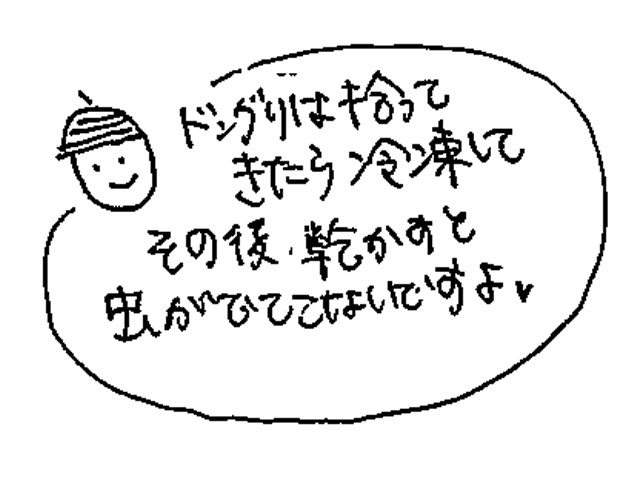 ドングリは拾って
きたら冷凍して
その後、乾かすと
虫がでてこないですよ♥